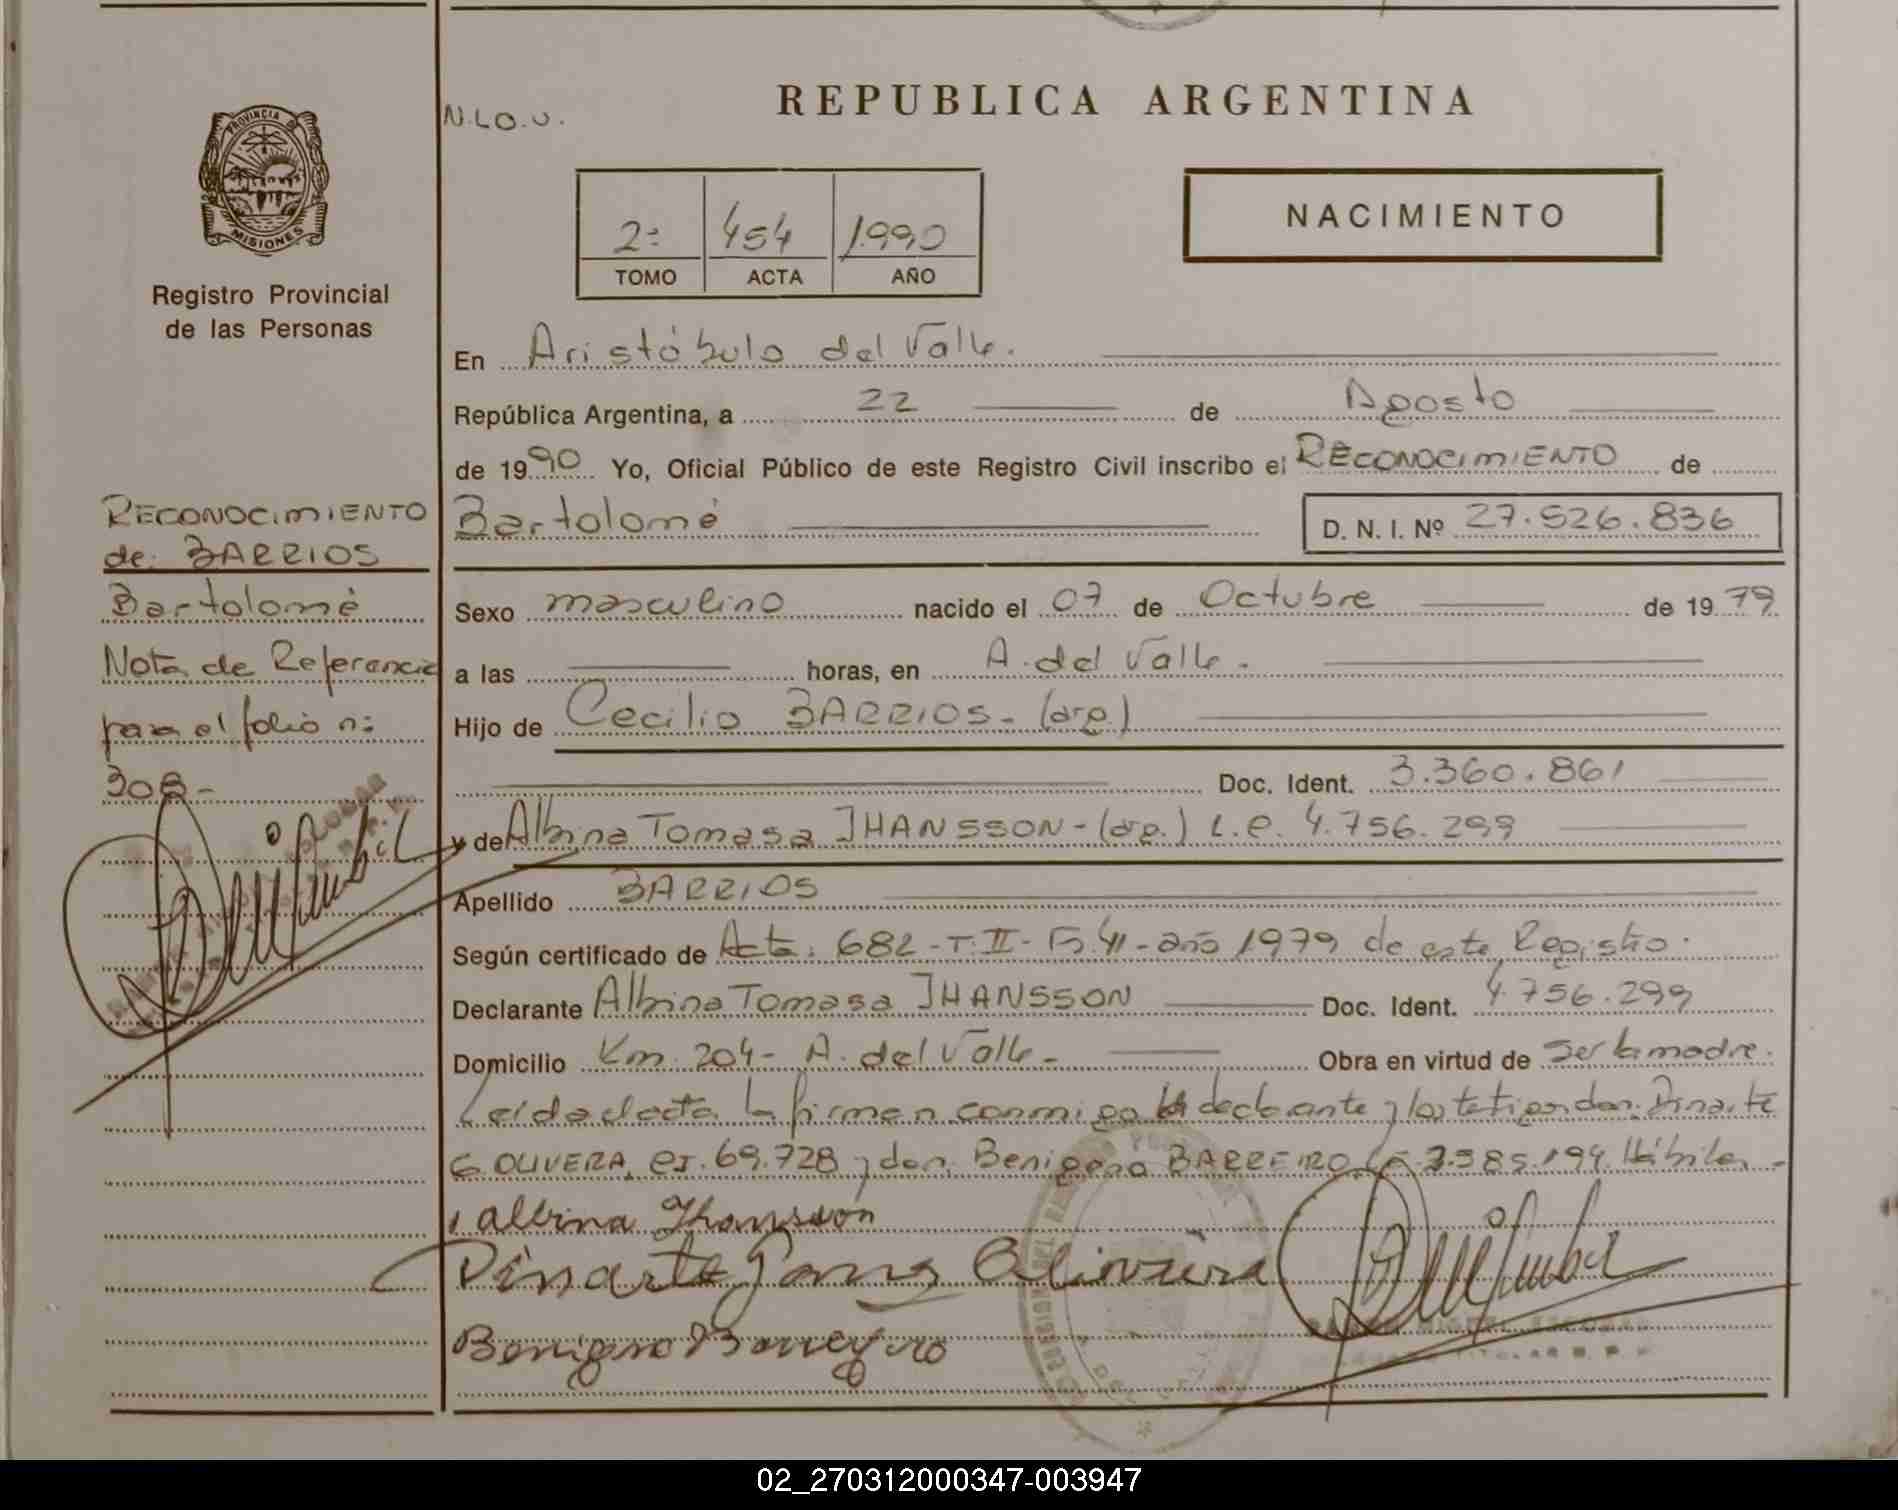 PROVINCIA DE
MISIONES
Registro Provincial
de las Personas
RECONOCIMIENTO
de: BARRIOS
Bartolomé
Nota de Referencia
para el folio n:
308-
N.LO.U.
REPUBLICA ARGENTINA
2: 454 1990
TOMO ACTA AÑO
NACIMIENTO
En Aristóbulo del Valle.
República Argentina, a 22 de Agosto
de 1990 Yo, Oficial Público de este Registro Civil inscribo el RECONOCIMIENTO de
Bartolomé D. N. I. Nº 27.526.836
Sexo masculino nacido el 07 de Octubre de 1979
a las horas, en A. del Valle.
Hijo de Cecilio BARRIOS- (arg.)
Doc. Ident. 3.360.861
y de Albina Tomasa JHANSSON-(arg.) L.C. 4.756.299
Apellido BARRIOS
Según certificado de Acta: 682-T.II- año 1979 de este Registro.
Declarante Albina Tomasa JHANSSON Doc. Ident. 4.756.299
Domicilio Km. 204- A. del Valle- Obra en virtud de ser la madre.
Leída el acta la firman conmigo la declarante y los testigos don: Dinarte
G. OLIVERA, CI. 69.728 y don: Benigno BARREIRO, 7.585.194. Hábiles-
Albina Jhansson
Dinarte Olivera
Benigno Barreyro
02_270312000347-003947